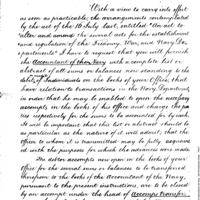 With a view to carry into effect
as soon as practicable, the arrangements contemplated
by the act of the 16 July last, entitled "An act to
alter and amend the several acts for the establishment
and regulation of the Treasury, War, and Navy De-
partments" I have to request that you will furnish
the Accountant of the Navy with a complete list or
abstract of all sums or balances now standing to the
debit of individuals on the books of your Office, that
have relation to transactions in the Navy Department,
in order that he may be enabled to open the necessary
accounts on the books of his Office and charge the par
ties respectively for the sums to be accounted for by each.
It will be important that this list or abstract should
be as particular as the nature of it will admit; that the
officer to whom it is transmitted may be fully apprized
of the purpose for which the advances were made.
The debtor accounts now open in the books of your
office for the several sums or balances to be transferred
therefrom to the books of the Accountant of the Navy,
pursuant to the present instructions, are to be closed
by an account under the head of Accounts Transfer